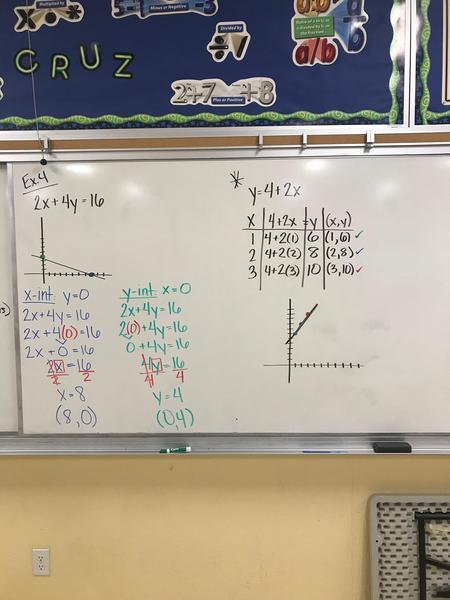 Multiplied by
x • *
Minus or Negative
Divided by
÷ /
a/b
CRUZ
2+7 +8
Plus or Positive
Ex.4
2x+4y=16
x-int: y=0
2x+4y=16
2x+4(0)=16
2x+0=16
2x=16
2 2
x=8
(8,0)
y-int: x=0
2x+4y=16
2(0)+4y=16
0+4y=16
4y=16
4 4
y=4
(0,4)
* y=4+2x
x 4+2x =y (x,y)
1 4+2(1) 6 (1,6) ✓
2 4+2(2) 8 (2,8) ✓
3 4+2(3) 10 (3,10) ✓